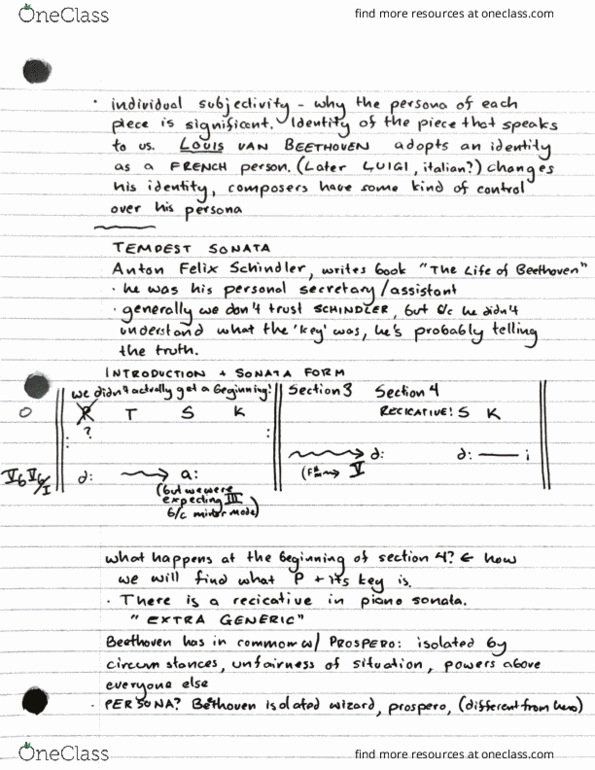 OneClass
find more resources at oneclass.com
· individual subjectivity - why the persona of each
piece is significant. Identity of the piece that speaks
to us. LOUIS VAN BEETHOVEN adopts an identity
as a FRENCH person. (Later LUIGI, italian?) changes
his identity, composers have some kind of control
over his persona
TEMPEST SONATA
Anton Felix Schindler, writes book "The Life of Beethoven"
· he was his personal secretary/assistant
· generally we don't trust SCHINDLER, but b/c he didn't
understand what the 'key' was, he's probably telling
the truth.
INTRODUCTION + SONATA FORM
we didn't actually get a beginning! Section 3 Section 4
O P T S K RECICATIVE! S K
?
d: → a: d: d: — i
(but we were
expecting III
b/c minor mode)
V
what happens at the beginning of section 4? ← how
we will find what P + its key is.
· There is a recicative in piano sonata.
"EXTRA GENERIC"
Beethoven has in common w/ PROSPERO: isolated by
circumstances, unfairness of situation, powers above
everyone else
· PERSONA? Bethoven isolated wizard, prospero, (different from hero)
OneClass
find more resources at oneclass.com